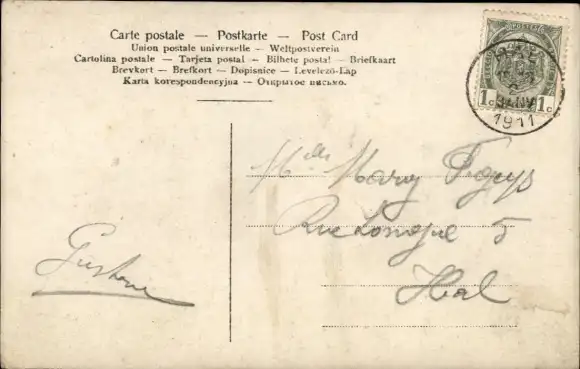 Carte postale — Postkarte — Post Card
Union postale universelle — Weltpostverein
Cartolina postale — Tarjeta postal — Bilhete postal — Briefkaart
Brevkort — Brefkort — Dopisnice — Levelező-Lap
Karta korespondencyjna — Открытое письмо.
1c 1c
JANV
1911
Mlle Mary
Rue Longue 5
Hal
Gustave